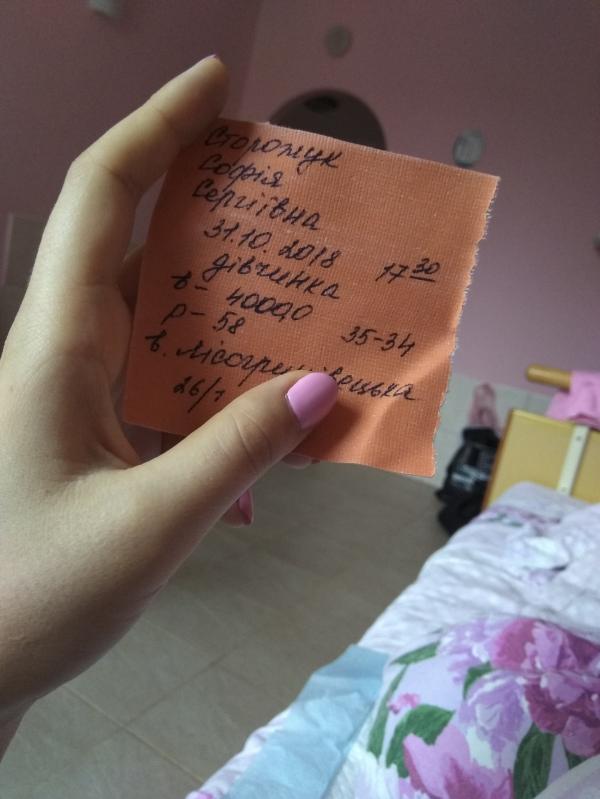 Сторожук
Софія
Сергіївна
31.10.2018 17 30
дівчинка
в- 4000,0
р- 58 35-34
в.
26/1